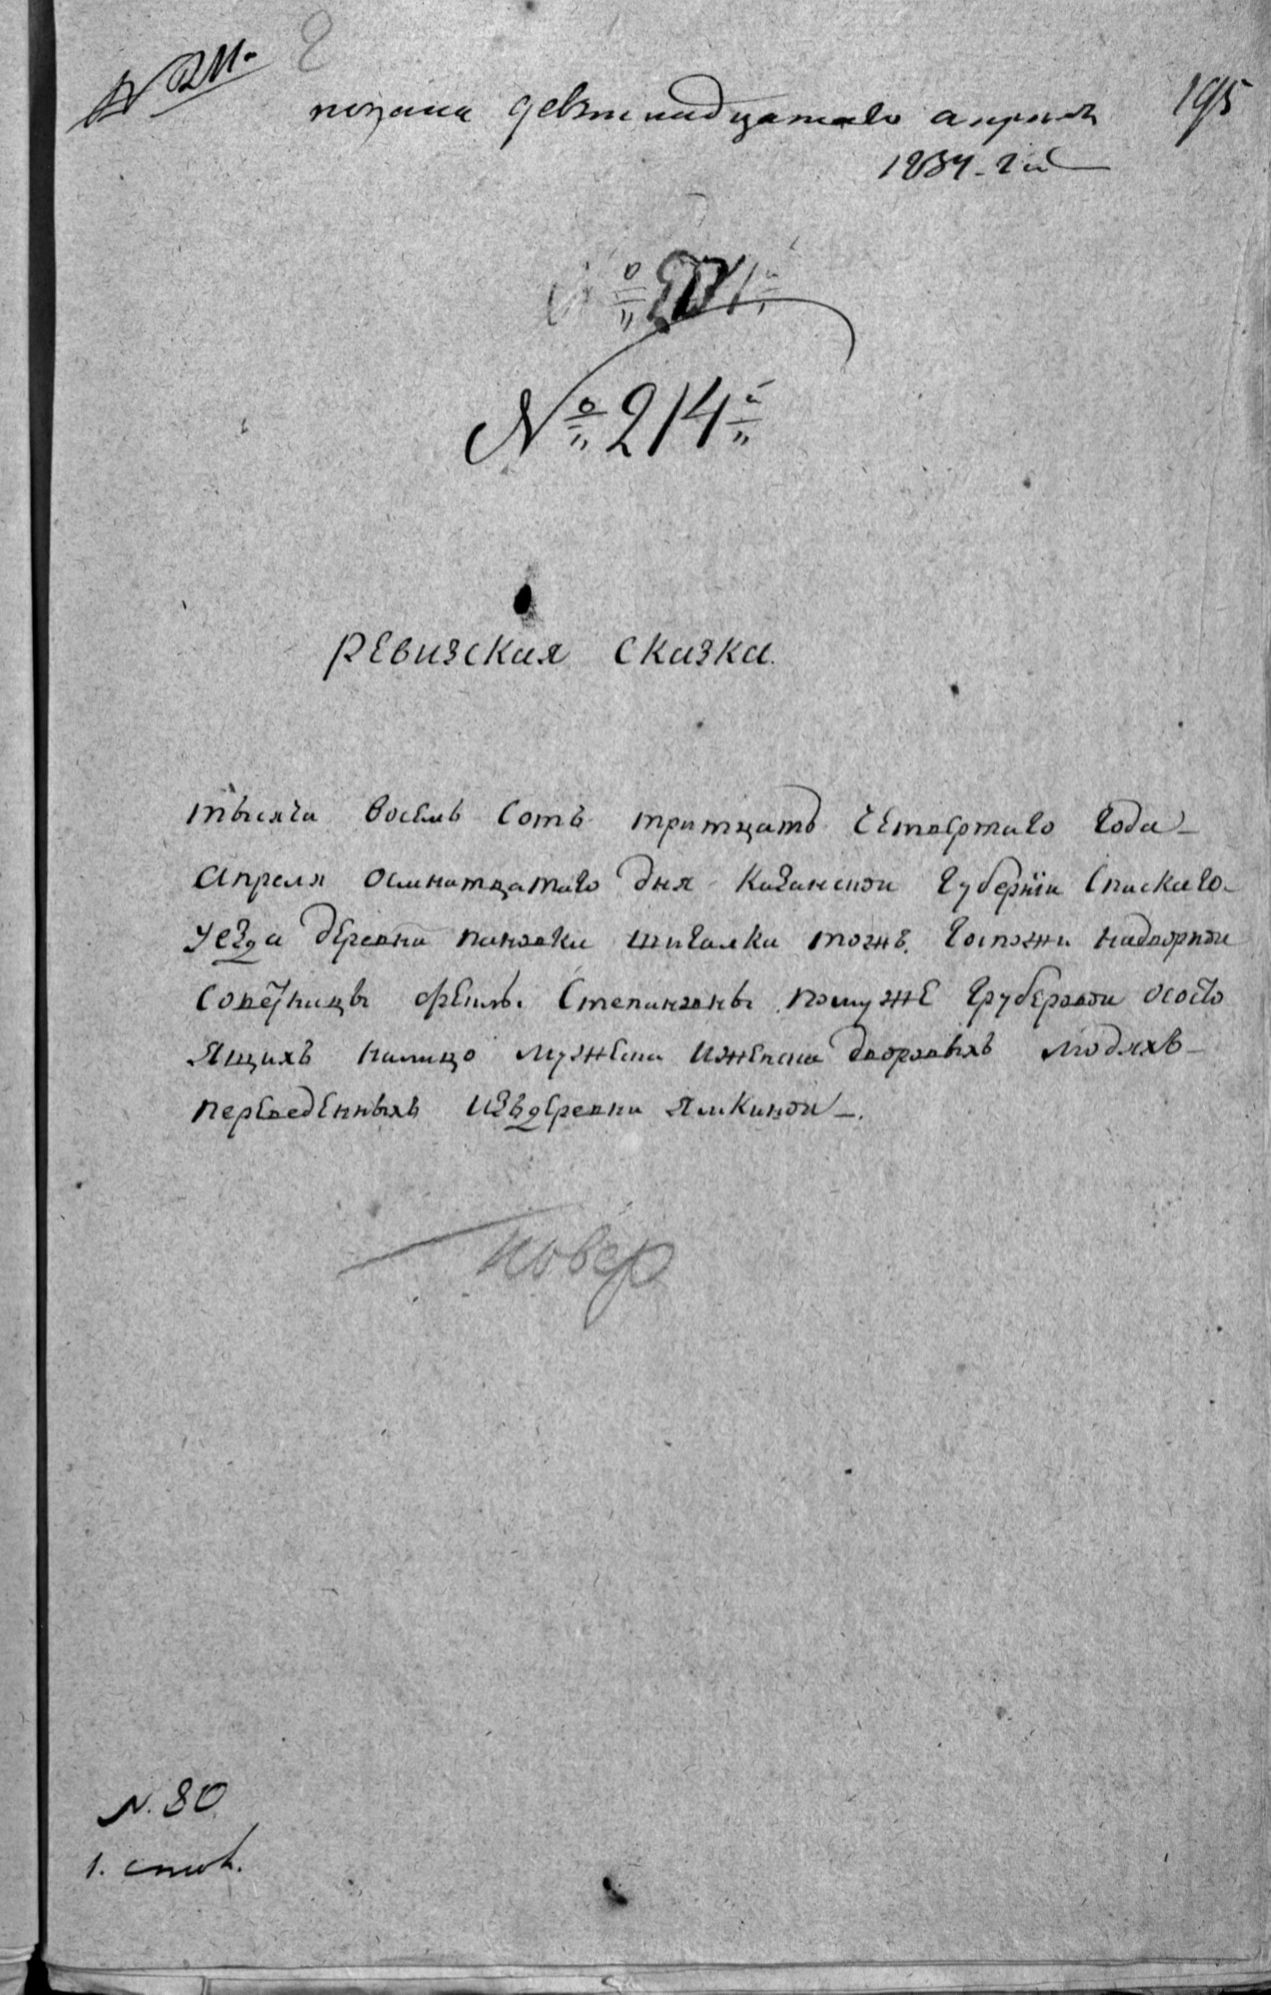 № 211.
2
подана девятнадцатаго апреля
195
1834. г
№ 214й
ревизская сказка.
тысяча восемь сотъ тритцать четвертаго года
апреля осмнатцатаго дня казанской губернiи спаскаго
уезда деревни пановки шигалки тожъ. госпожи надворной
советницы Степановны по муже груберовой о состо
ящихъ налицо мужеска и женска дворовыхъ людяхъ
переведенныхъ изъ деревни Ямкиной
повер
N. 80
1. стол.